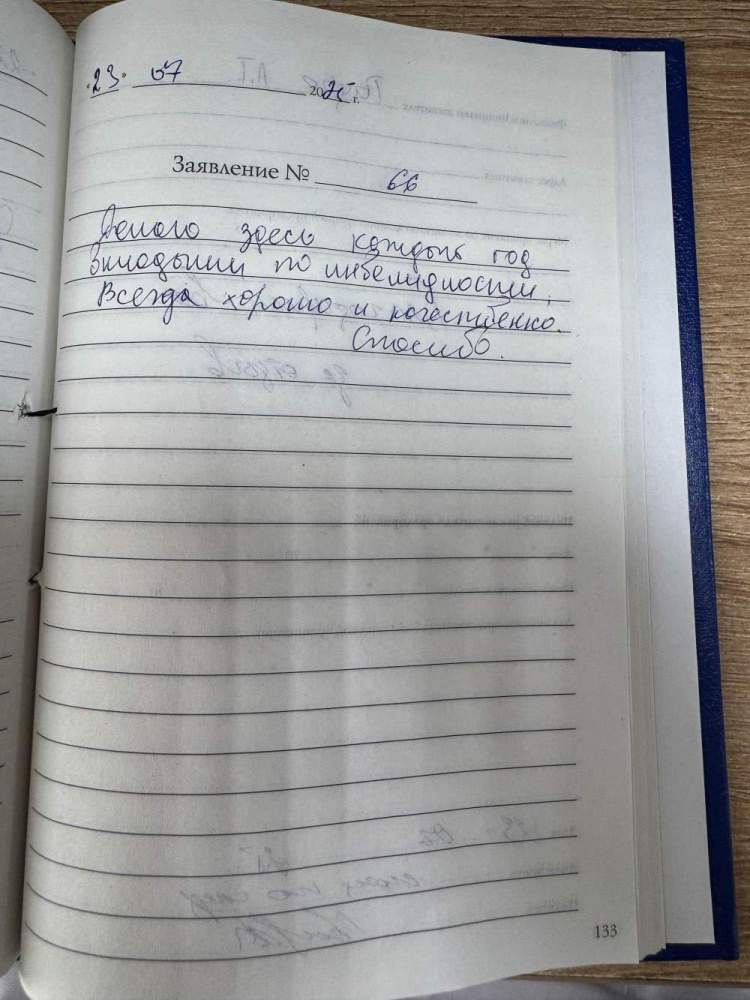 "23" 07 2025 г.
Заявление № 66
Делаю здесь каждый год
вкладыши по инвалидности.
Всегда хорошо и качественно.
Спасибо.
133